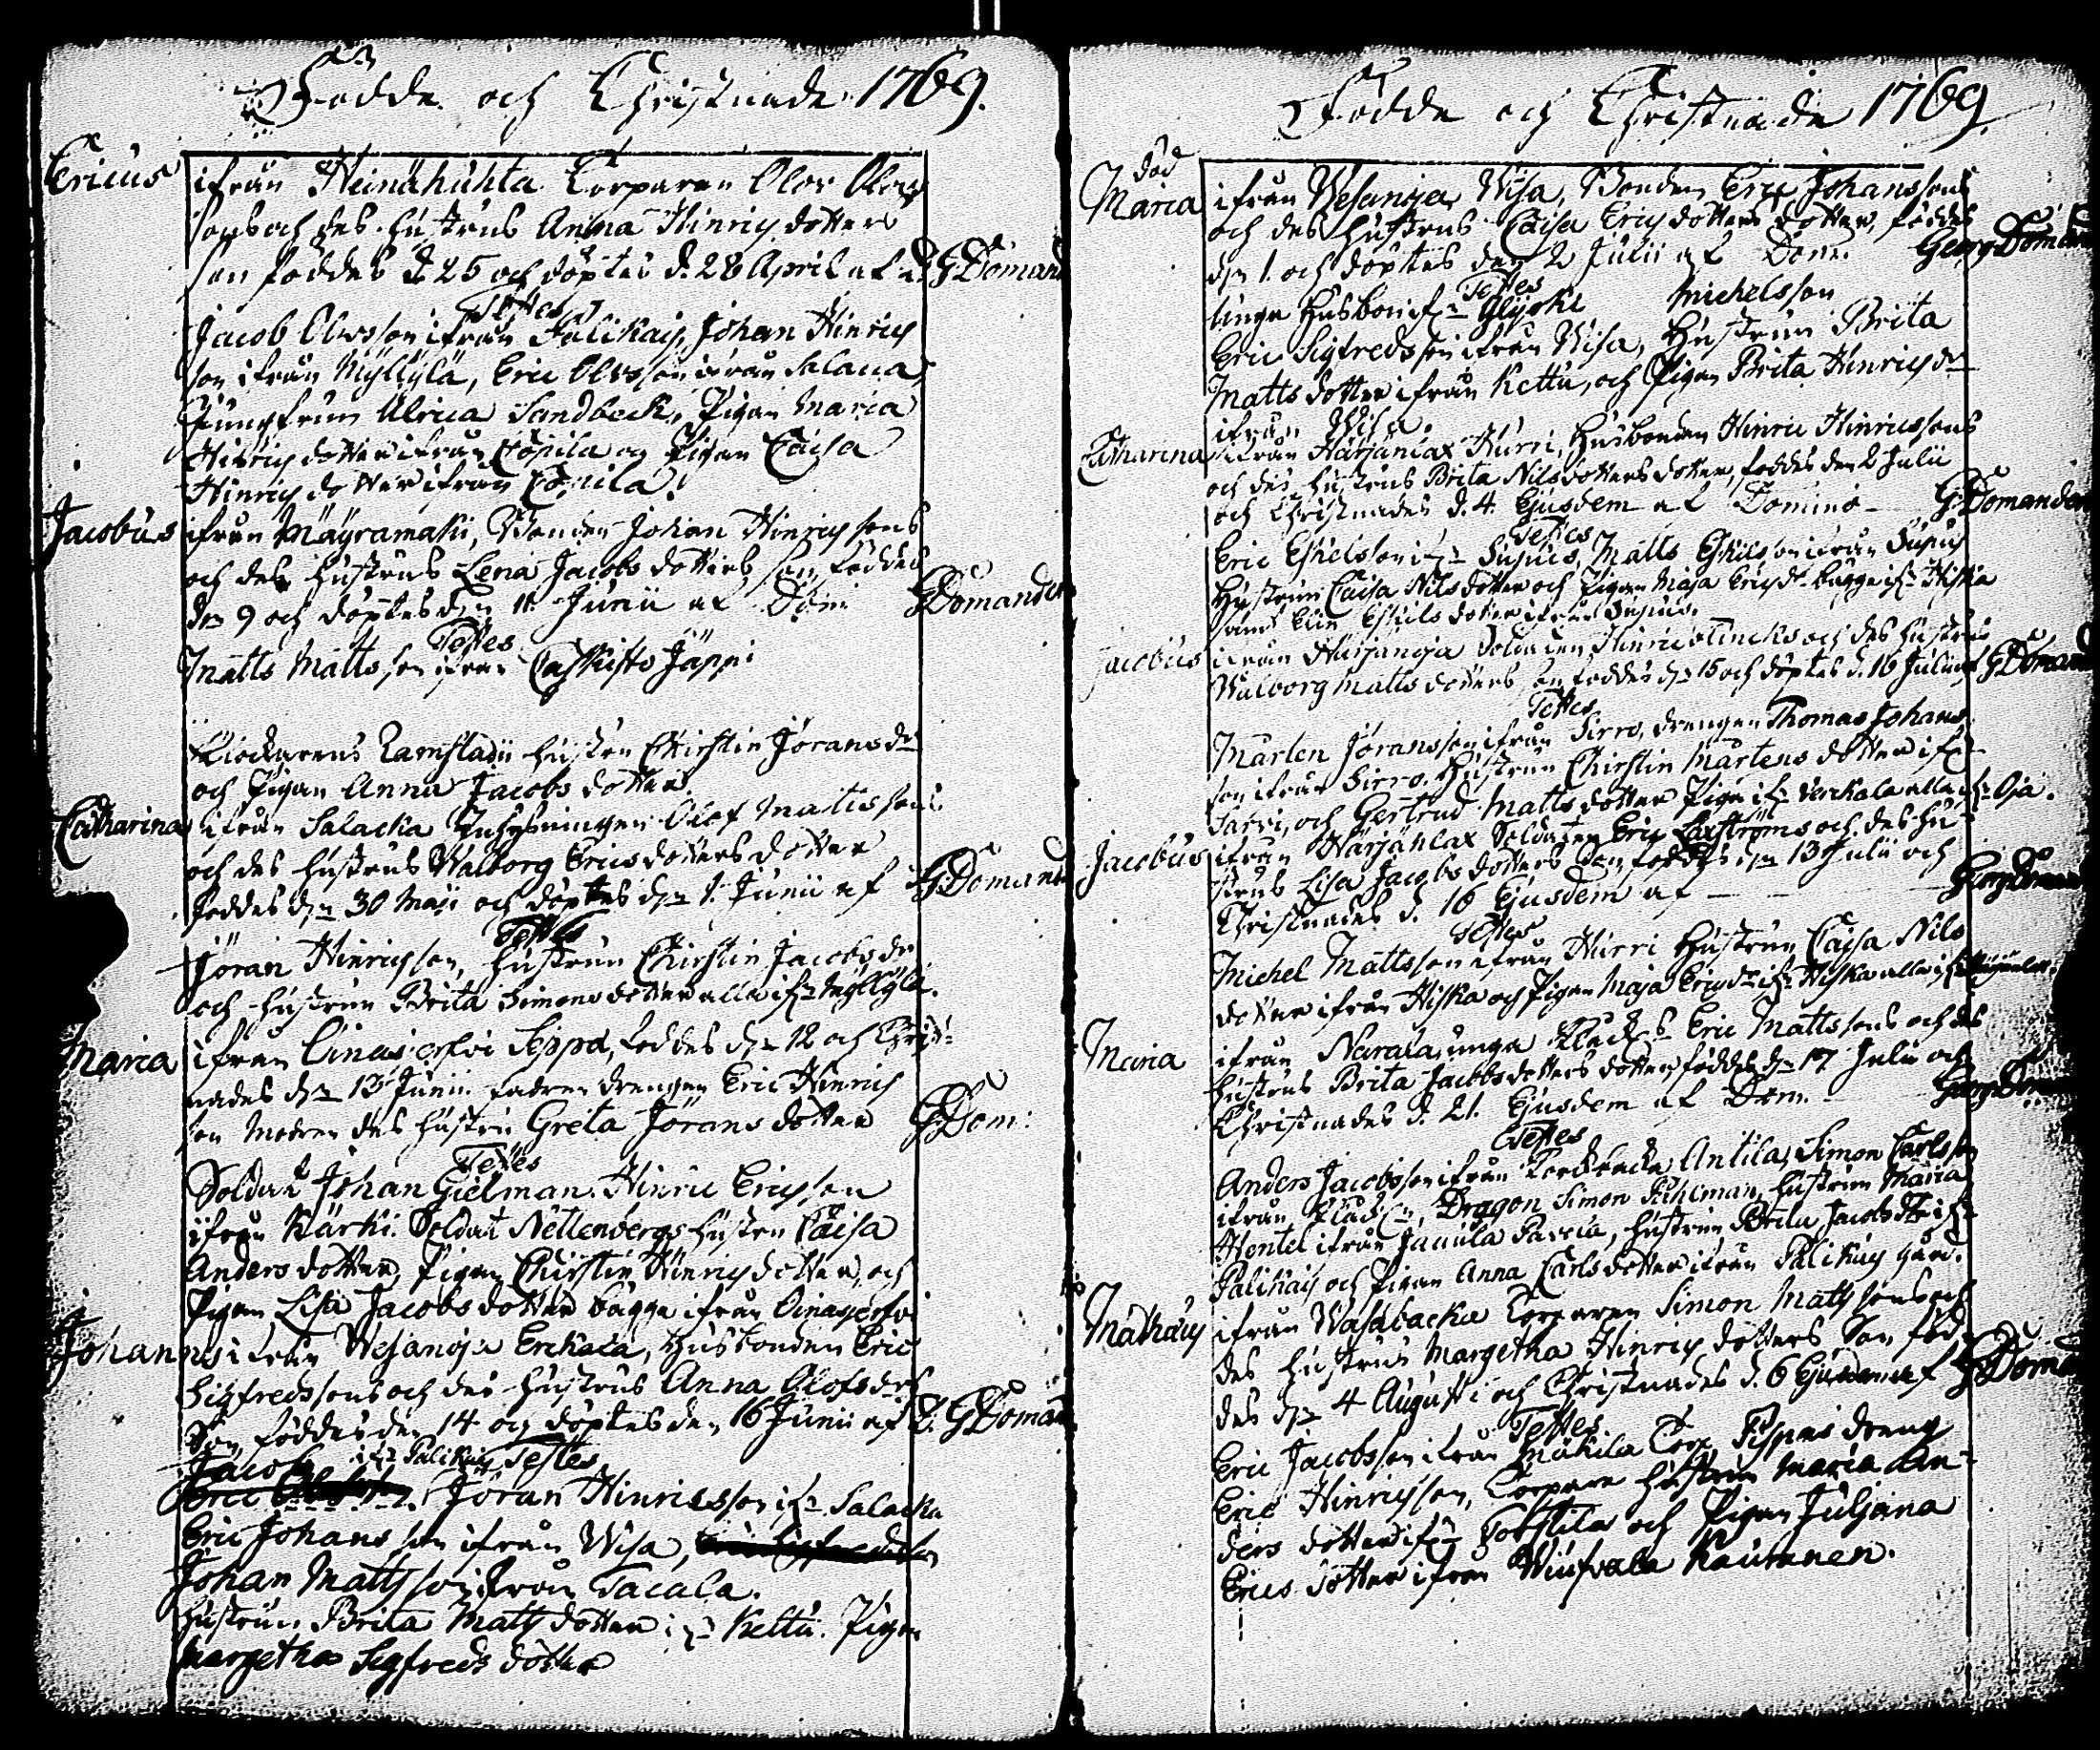 Födde och Christnade 1769.
Ericus ifrån Heinähuhta Torparen Olof Olofs
sons och des hustrus Anna Hinricsdotters
son föddes d. 25 och döptes d. 28 April af d. G Domand
Testes
Jacob Olofsson ifrån Palikais, Johan Hinrics
son ifrån Myllylä, Eric Olofsson ifrån Salaca,
Jungfrun Ulrica Sandbeck, Pigan Maria
Hinricsdotter ifrån och Pigan Caisa
Hinricsdotter ifrån
Jacobus ifrån Mäyrämäki, Bonden Johan Hinricssons
och des hustrus Lena Jacobsdotters son föddes
den 9 och döptes den 11 Junii af Dom: G Domander
Testes
Matts Mattsson ifrån Caskisto Jäppi
Klockarens Ramstadii hustru Chirstin Jöransdr
och Pigan Anna Jacobsdotter
Catharina ifrån Salacka Inhysningen Olof Matissons
och des hustrus Walborg Ericsdotters dotter
föddes dn 30 Maji och döptes dn 1. Junii af G Domand
Testes
Jöran Hinricsson, hustrun Chirstin Jacobsdr
och hustrun Brita Simonsdotter alla ifn Myllylä.
Maria ifrån Seppä, föddes dn 12 och Christ-
nades dn 13 Junii. fadren drengen Eric Hinrics
son Modren des hustru Greta Jöransdotter G Dom:
Testes
Soldat Johan Gielman. Hinric Ericsson
ifrån Kärki. Soldat Nettenbergs hustru Caisa
Andersdotter, Pigan Chirstin Hinricsdotter, och
Pigan Lisa Jacobsdotter bägge ifrån
Johannes ifrån Wesanoja Erckala, Husbonden Eric
Sigfredssons och des hustrus Anna Olofsdrs
Son föddes den 14 och döptes den 16 Junii af D. G Doman
Jacob ifn Palikais Testes
Jöran Hinricsson ifn Salacka
Eric Johansson ifrån Wisa,
Johan Mattsson ifrån Tacala.
hustrun Brita Mattsdotter ifn Kettu. Pigan
Margetha Sigfredsdotter
Födde och Christnade 1769
död
Maria ifrån Wesanoja Wisa, Bonden Eric Johanssons
och des hustrus Caisa Ericsdotters dotter, föddes
dn 1. och döptes den 2 Julii af Dom. Georg Domander
Testes
unga Husbon ifn Michelsson
Eric Sigfredsson ifrån Wisa, Hustrun Brita
Mattsdotter ifrån Kettu, och Pigan Brita Hinricsdr
ifrån Wisa.
Catharina ifrån Härjänlax Hurri, Husbonden Hinric Hinricssons
och des hustrus Brita Nilsdotters dotter, föddes den 2 Julii
och Christnades d. 4. Ejusdem af Domino G. Domander
Testes
Eric Eskelsson ifn Supus, Matts Eskilsson ifrån Supus
Hustrun Caisa Nilsdotter och Pigan Maja Ericsdr bägge ifn Hiska
samt Elin Eskilsdotter ifrån Supus.
Jacobus ifrån Härjänoja Soldaten Hinric och des hustrus
Walborg Mattsdotters son föddes dn 15 och döptes d. 16 Julii af G Domand
Testes
Mårten Jöransson ifrån Sirro, drengen Thomas Johans
son ifrån Sirro. Hustrun Chirstin Mårtensdotter ifn
Sarvi, och Gertrud Mattsdotter Piga ifn Verckala alla ifn Oja.
Jacobus ifrån Härjänlax Soldaten Eric Laxströms och des hu-
strus Lisa Jacobsdotters Son föddes dn 13 Julii och
Christnades d. 16 Ejusdem af Georg Domand
Testes
Michel Mattsson ifrån Hurri Hustrun Caisa Nils
dotter ifrån Hiska och Pigan Maja Ericsdr ifn Hiska alla ifn
Maria ifrån Narala, unga Eric Mattssons och des
hustrus Brita Jacobsdotters dotter föddes dn 17 Julii och
Christnades d. 21. Ejusdem af Dom. Georg Dom
Testes
Anders Jacobsson ifrån Antila, Simon Carlsson
ifrån Dragon Simon hustrun Maria
ifrån hustrun Brita Jacobsdr ifn
Palikais och Pigan Anna Carlsdotter ifrån Palikais gård.
Mathæus ifrån Wasabacka Torparen Simon Matssons och
des hustrus Margetha Hinricsdotters Son föd-
des dn 4 Augusti och Christnades d. 6 Ejusdem af G Doma
Testes
Eric Jacobsson ifrån Mäkilä Torp, dreng
Eric Hinricsson, Torpare hustrun Maria An-
dersdotter ifn Torstila och Pigan Juljana
Ericsdotter ifrån Kaumanen.